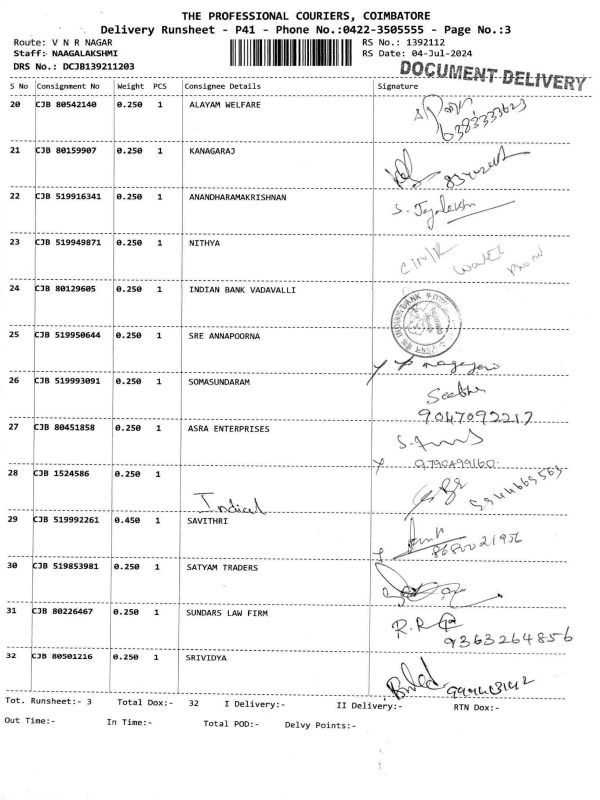 THE PROFESSIONAL COURIERS, COIMBATORE
Delivery Runsheet - P41 - Phone No.:0422-3505555 - Page No.:3
Route: V N R NAGAR RS No.: 1392112
Staff: NAAGALAKSHMI RS Date: 04-Jul-2024
DRS No.: DCJB139211203 DOCUMENT DELIVERY
S No Consignment No Weight PCS Consignee Details Signature
20 CJB 80542140 0.250 1 ALAYAM WELFARE
21 CJB 80159907 0.250 1 KANAGARAJ
22 CJB 519916341 0.250 1 ANANDHARAMAKRISHNAN
23 CJB 519949871 0.250 1 NITHYA
24 CJB 80129605 0.250 1 INDIAN BANK VADAVALLI
25 CJB 519950644 0.250 1 SRE ANNAPOORNA
26 CJB 519993091 0.250 1 SOMASUNDARAM
9047092217
27 CJB 80451858 0.250 1 ASRA ENTERPRISES
9790499160
28 CJB 1524586 0.250 1
29 CJB 519992261 0.450 1 SAVITHRI
30 CJB 519853981 0.250 1 SATYAM TRADERS
31 CJB 80226467 0.250 1 SUNDARS LAW FIRM R.R
9363264856
32 CJB 80501216 0.250 1 SRIVIDYA
Tot. Runsheet:- 3 Total Dox:- 32 I Delivery:- II Delivery:- RTN Dox:-
Out Time:- In Time:- Total POD:- Delvy Points:-